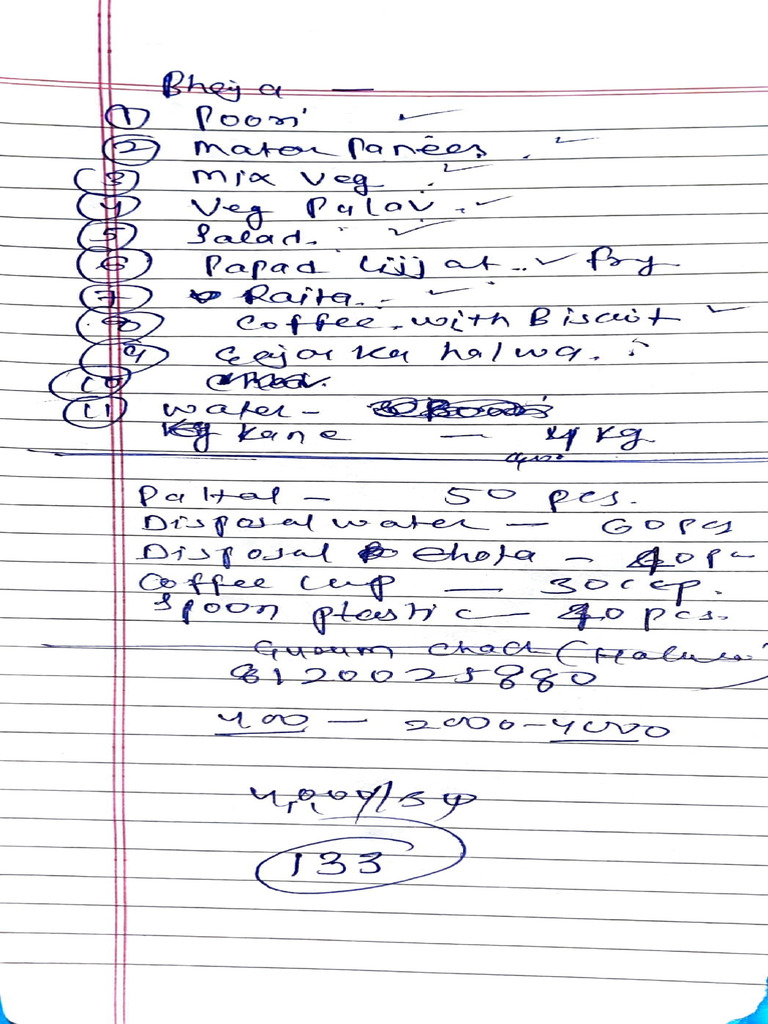 Bheja —
① Poori ✓
② Mator Paneer. ✓
③ Mix Veg. ✓
④ Veg Palav. ✓
⑤ Salad. ✓
⑥ Papad lijjat.. ✓ Fry
⑦ Raita. ✓
⑧ Coffee. with Biscuit ✓
⑨ Gajar ka halwa.
⑩
⑪ water -
Kane — 4 kg
Pattal - 50 pcs.
Disposal water — 60 pcs
Disposal chota - 40 p
Coffee cup — 30 cup.
Spoon plastic — 40 pcs.
8120025880
400 — 2000-4000
133